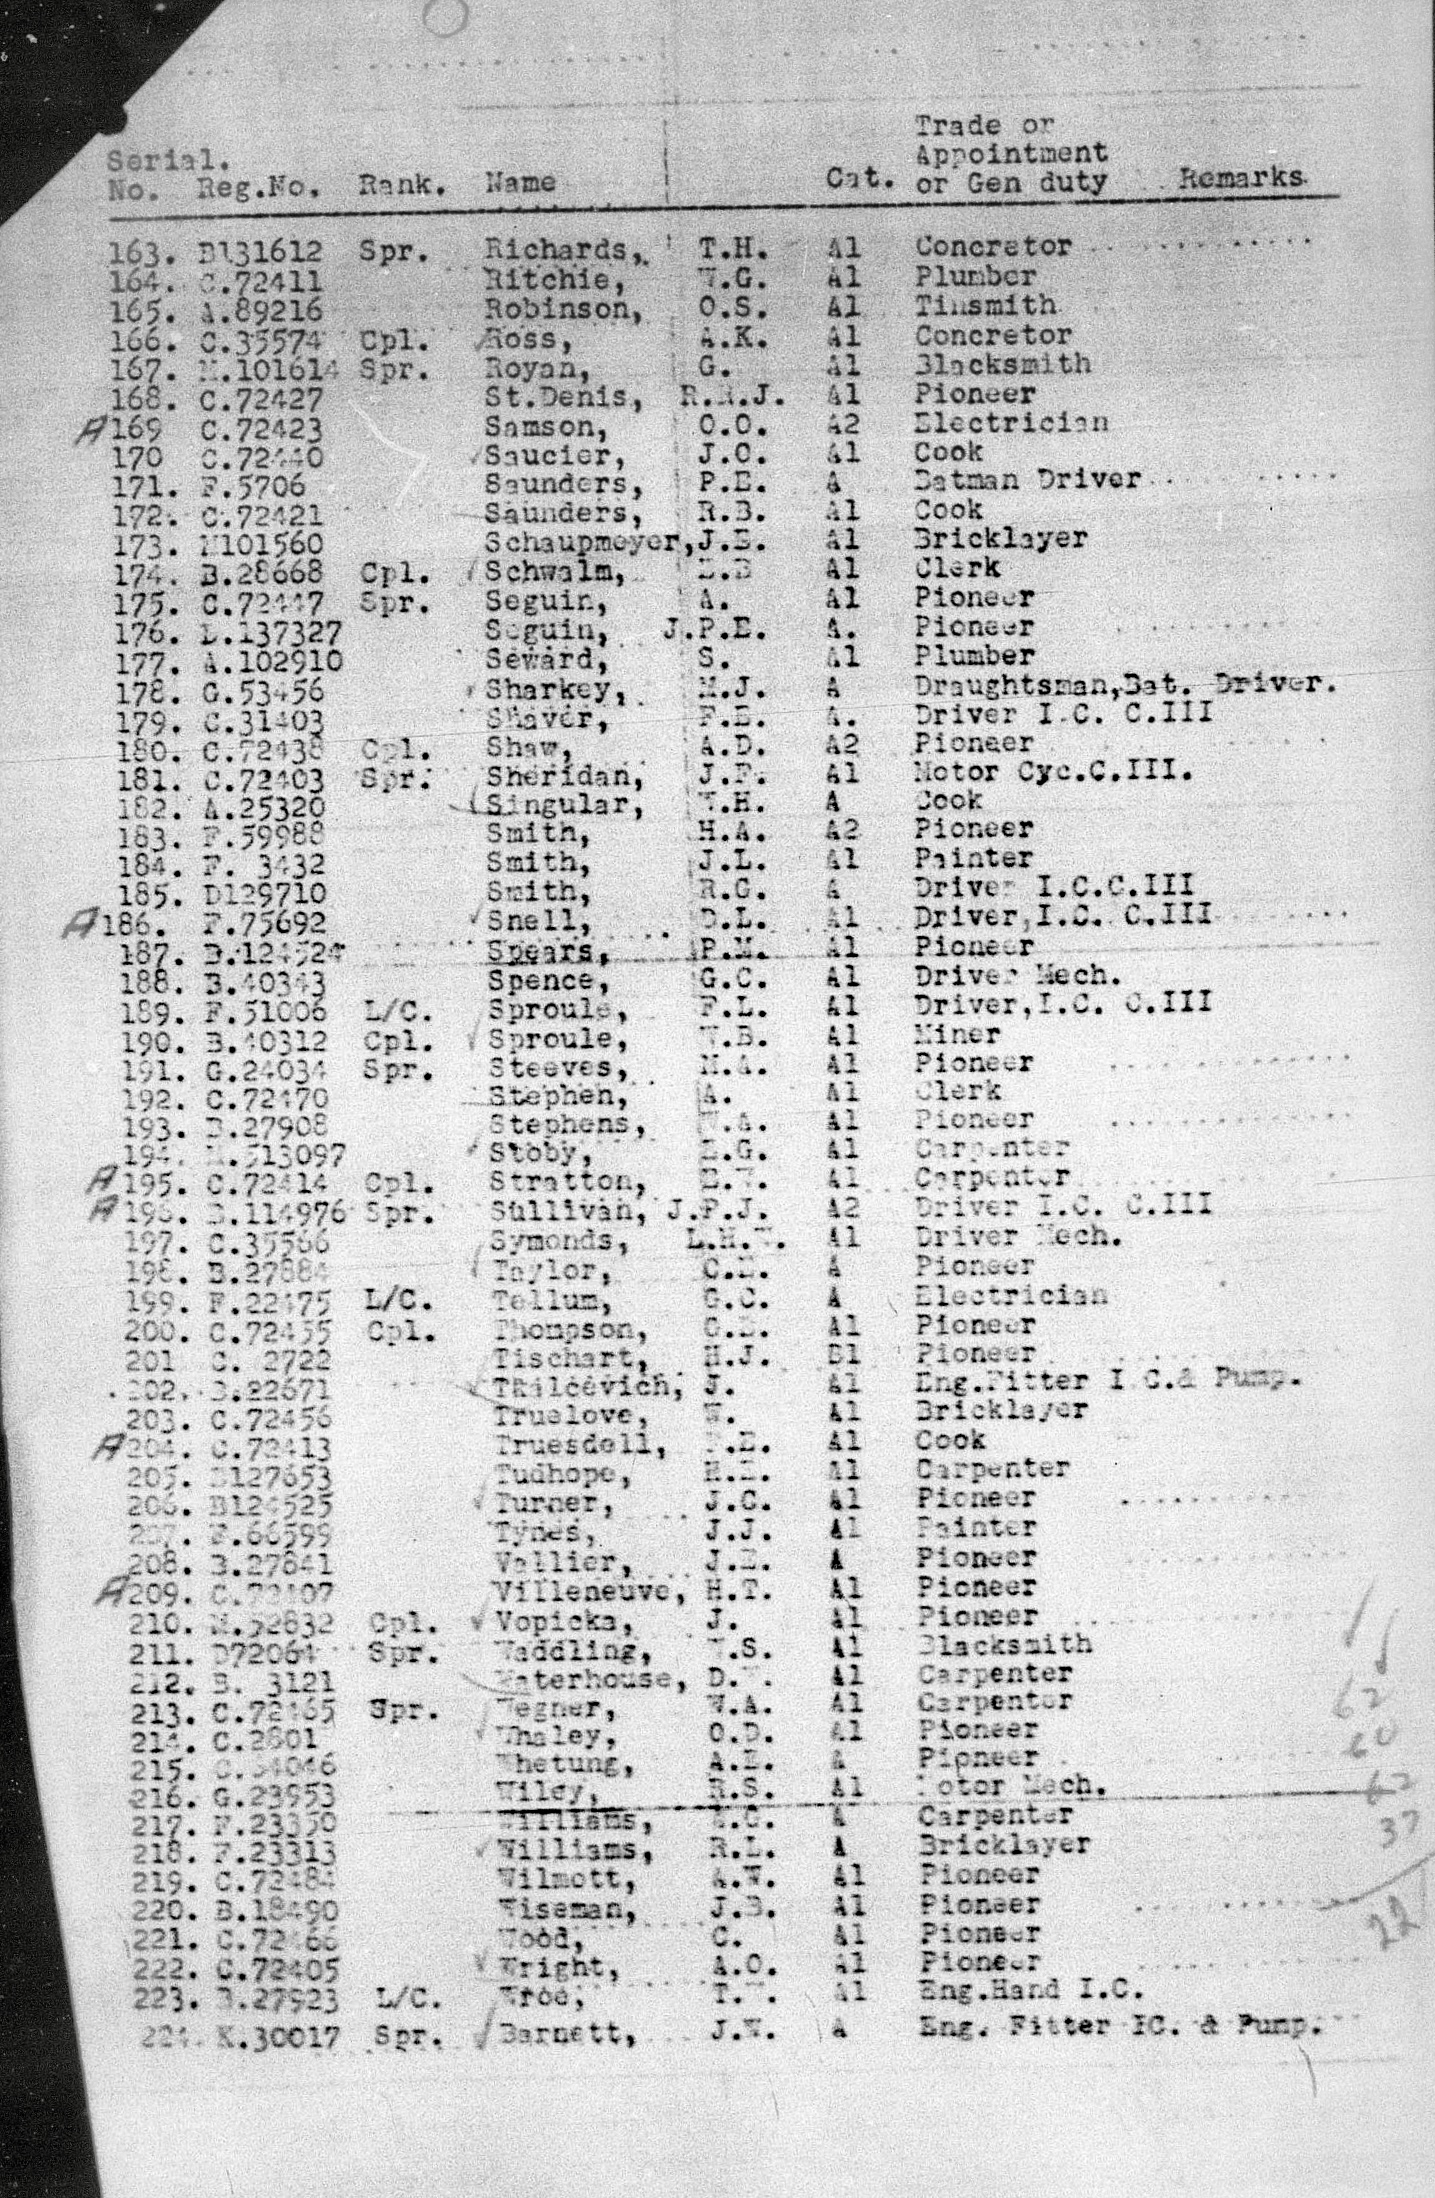 Trade or
Serial. Appointment
No. Reg.No. Rank. Name Cat. or Gen duty Remarks
163. B131612 Spr. Richards, T.H. A1 Concretor
164. C.72411 Ritchie, W.G. A1 Plumber
165. A.89216 Robinson, O.S. A1 Tinsmith
166. C.35574 Cpl. Ross, A.K. A1 Concretor
167. M.101614 Spr. Royan, G. A1 Blacksmith
168. C.72427 St.Denis, A1 Pioneer
A 169 C.72423 Samson, O.O. A2 Electrician
170 C.72440 Saucier, J.C. A1 Cook
171. F.5706 Saunders, P.E. A Batman Driver
172. C.72421 Saunders, R.B. A1 Cook
173. M101560 Schaupmeyer, J.E. A1 Bricklayer
174. B.28668 Cpl. Schwalm, A1 Clerk
175. C.72447 Spr. Seguin, A. A1 Pioneer
176. D.137327 Seguin, J.P.E. A. Pioneer
177. A.102910 Seward, S. A1 Plumber
178. G.53456 Sharkey, M.J. A Draughtsman,Bat. Driver.
179. C.31403 Shaver, F.E. A. Driver I.C. C.III
180. C.72438 Cpl. Shaw, A.D. A2 Pioneer
181. C.72403 Spr. Sheridan, J.F. A1 Motor Cyc.C.III.
182. A.25320 Singular, W.H. A Cook
183. F.59988 Smith, H.A. A2 Pioneer
184. F. 3432 Smith, J.L. A1 Painter
185. D129710 Smith, R.G. A Driver I.C.C.III
A 186. F.75692 Snell, D.L. A1 Driver,I.C. C.III
187. B.124524 Spears, P.M. A1 Pioneer
188. B.40343 Spence, G.C. A1 Driver Mech.
189. F.51006 L/C. Sproule, F.L. A1 Driver,I.C. C.III
190. B.40312 Cpl. Sproule, W.B. A1 Miner
191. G.24034 Spr. Steeves, M.A. A1 Pioneer
192. C.72470 Stephen, A. A1 Clerk
193. B.27908 Stephens, W.A. A1 Pioneer
194. Stoby, E.G. A1 Carpenter
A 195. C.72414 Cpl. Stratton, E.W. A1 Carpenter
A 196. B.114976 Spr. Sullivan, J.P.J. A2 Driver I.C. C.III
197. C.35566 Symonds, L.H.W. A1 Driver Mech.
198. B.27884 Taylor, C.E. A Pioneer
199. F.22475 L/C. Tellum, G.C. A Electrician
200. C.72455 Cpl. Thompson, G.E. A1 Pioneer
201 C. 2722 Tischart, H.J. B1 Pioneer
202. B.22671 Tkilcevich, J. A1 Eng.Fitter I.C.& Pump.
203. C.72456 Truelove, W. A1 Bricklayer
A 204. C.72413 Truesdell, A1 Cook
205. B127653 Tudhope, H.E. A1 Carpenter
206. B124525 Turner, J.G. A1 Pioneer
207. F.66599 Tynes, J.J. A1 Painter
208. B.27841 Vallier, J.E. A Pioneer
A 209. C.72407 Villeneuve, H.T. A1 Pioneer
210. M.52832 Cpl. Vopicka, J. A1 Pioneer
211. D72064 Spr. Waddling, W.S. A1 Blacksmith
212. B. 3121 Waterhouse, D.W. A1 Carpenter
213. C.72465 Spr. Wegner, W.A. A1 Carpenter
62
214. C.2801 Whaley, O.D. A1 Pioneer
60
215. C.54046 Whetung, A.E. A Pioneer
216. G.23953 Wiley, R.S. A1 Motor Mech.
62
217. F.23350 Williams, A.G. A Carpenter
37
218. F.23313 Williams, R.L. A Bricklayer
219. C.72484 Wilmott, A.W. A1 Pioneer
220. B.18490 Wiseman, J.B. A1 Pioneer
22
221. C.72466 Wood, C. A1 Pioneer
222. C.72405 Wright, A.O. A1 Pioneer
223. B.27923 L/C. Wroe, T.W. A1 Eng.Hand I.C.
224. K.30017 Spr. Barnett, J.W. A Eng. Fitter IC. & Pump.